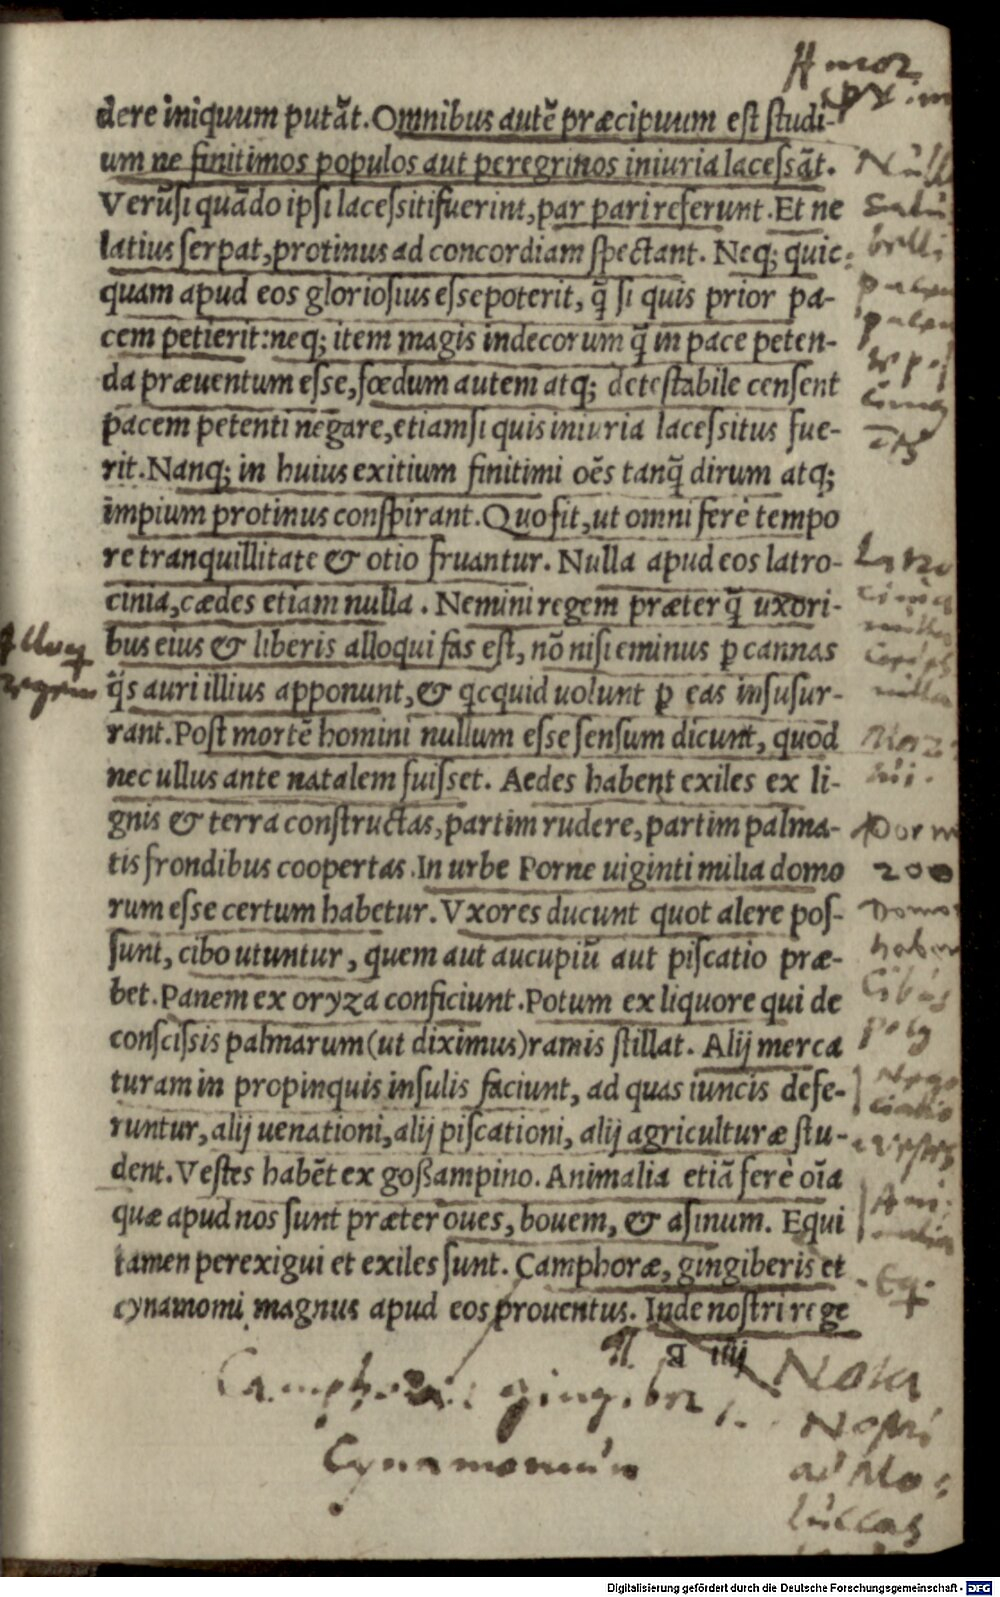 dere iniquum putāt. Omnibus autē præcipuum est studi-
um ne finitimos populos aut peregrinos iniuria lacessāt.
Verūsi quādo ipsi lacessiti fuerint, par pari referunt. Et ne
latius serpat, protinus ad concordiam spectant. Neq; quic-
quam apud eos gloriosius esse poterit, q̃ si quis prior pa-
cem petierit: neq; item magis indecorum q̃ in pace peten-
da præuentum esse, fœdum autem atq; detestabile censent
pacem petenti negare, etiamsi quis iniuria lacessitus fue-
rit. Nanq; in huius exitium finitimi oēs tanq̃ dirum atq;
impium protinus conspirant. Quo fit, ut omni ferè tempo
re tranquillitate & otio fruantur. Nulla apud eos latro-
cinia, cædes etiam nulla. Nemini regem præter q̃ uxori-
bus eius & liberis alloqui fas est, nō nisi eminus ꝑ cannas
q̃s auri illius apponunt, & qcquid uolunt ꝑ eas insusur-
rant. Post mortē homini nullum esse sensum dicunt, quod
nec ullus ante natalem fuisset. Aedes habent exiles ex li-
gnis & terra constructas, partim rudere, partim palma-
tis frondibus coopertas. In urbe Porne uiginti milia domo
rum esse certum habetur. Vxores ducunt quot alere pos-
sunt, cibo utuntur, quem aut aucupiū aut piscatio præ-
bet. Panem ex oryza conficiunt. Potum ex liquore qui de
conscissis palmarum (ut diximus) ramis stillat. Alij merca
turam in propinquis insulis faciunt, ad quas iuncis defe-
runtur, alij uenationi, alij piscationi, alij agriculturæ stu-
dent. Vestes habēt ex goßampino. Animalia etiā ferè oīa
quæ apud nos sunt præter oues, bouem, & asinum. Equi
tamen perexigui et exiles sunt. Camphoræ, gingiberis et
cynamomi magnus apud eos prouentus. Inde nostri rege
Nota
Nostri
ad Mo-
luccas
Cynamomum
Digitalisierung gefördert durch die Deutsche Forschungsgemeinschaft - DFG